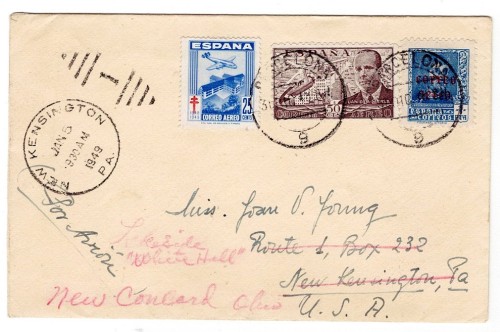 ESPAÑA
25
CORREO AEREO
ESPAÑA
50
BARCELONA
9
CORREO
AEREO
ESPAÑA
CORREOS
BARCELONA
9
NEW KENSINGTON
JAN 5
930 AM
1949
PA.
Por Avión
Miss. Joan V. Young
Lakeside
Route 1, Box 232
"White Hall"
New Kensington, Pa
New Concord Ohio
U. S. A.